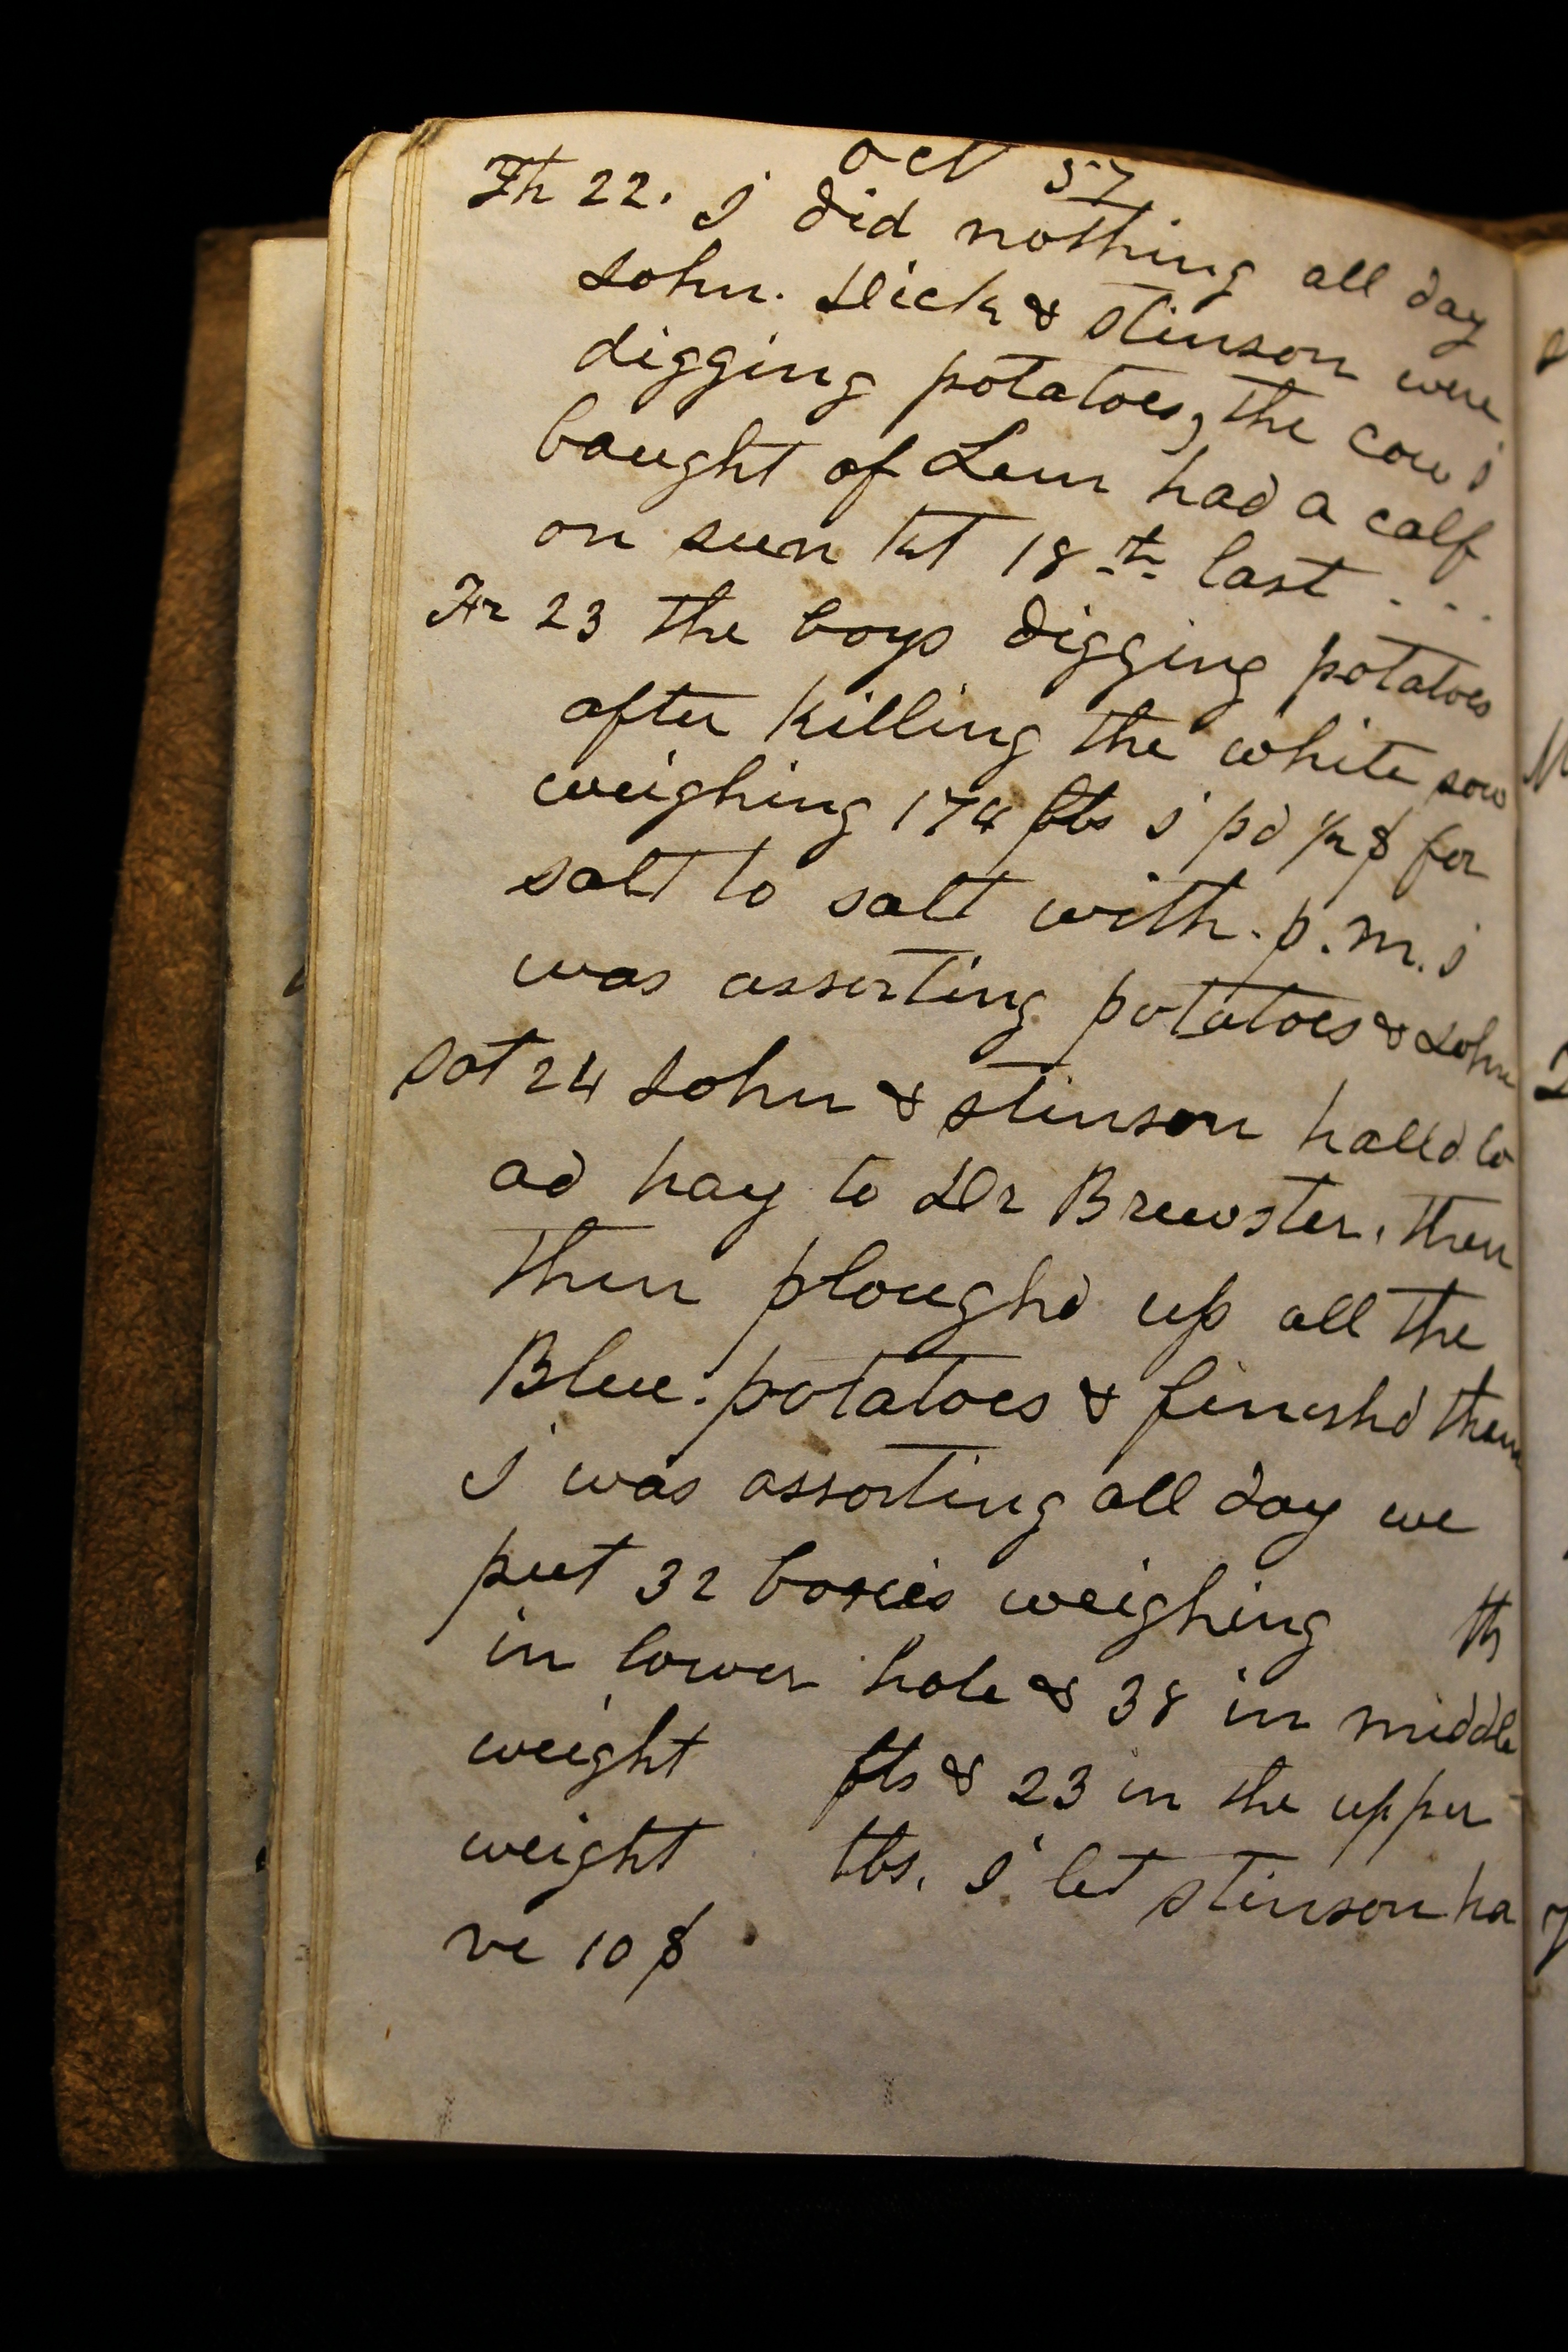 Oct 57
Th 22. I did nothing all day
John. Dick & Stinson were
digging potatoes, the cow I
bought of Lem had a calf
on sun 18th last . . .
Fr 23 the boys digging potatoes
after killing the white sow
weighing 174 lbs I pd $ for
salt to salt with. p.m. I
was assorting potatoes & John
Sat 24 John & Stinson halld lo
ad hay to Dr Brewster. then
then ploughd up all the
Blue. potatoes & finishd them
I was assorting all day we
put 32 boxies weighing
in lower hole & 38 in middle
weight lbs & 23 in the upper
weight lbs. I let Stinson ha
ve 10 $